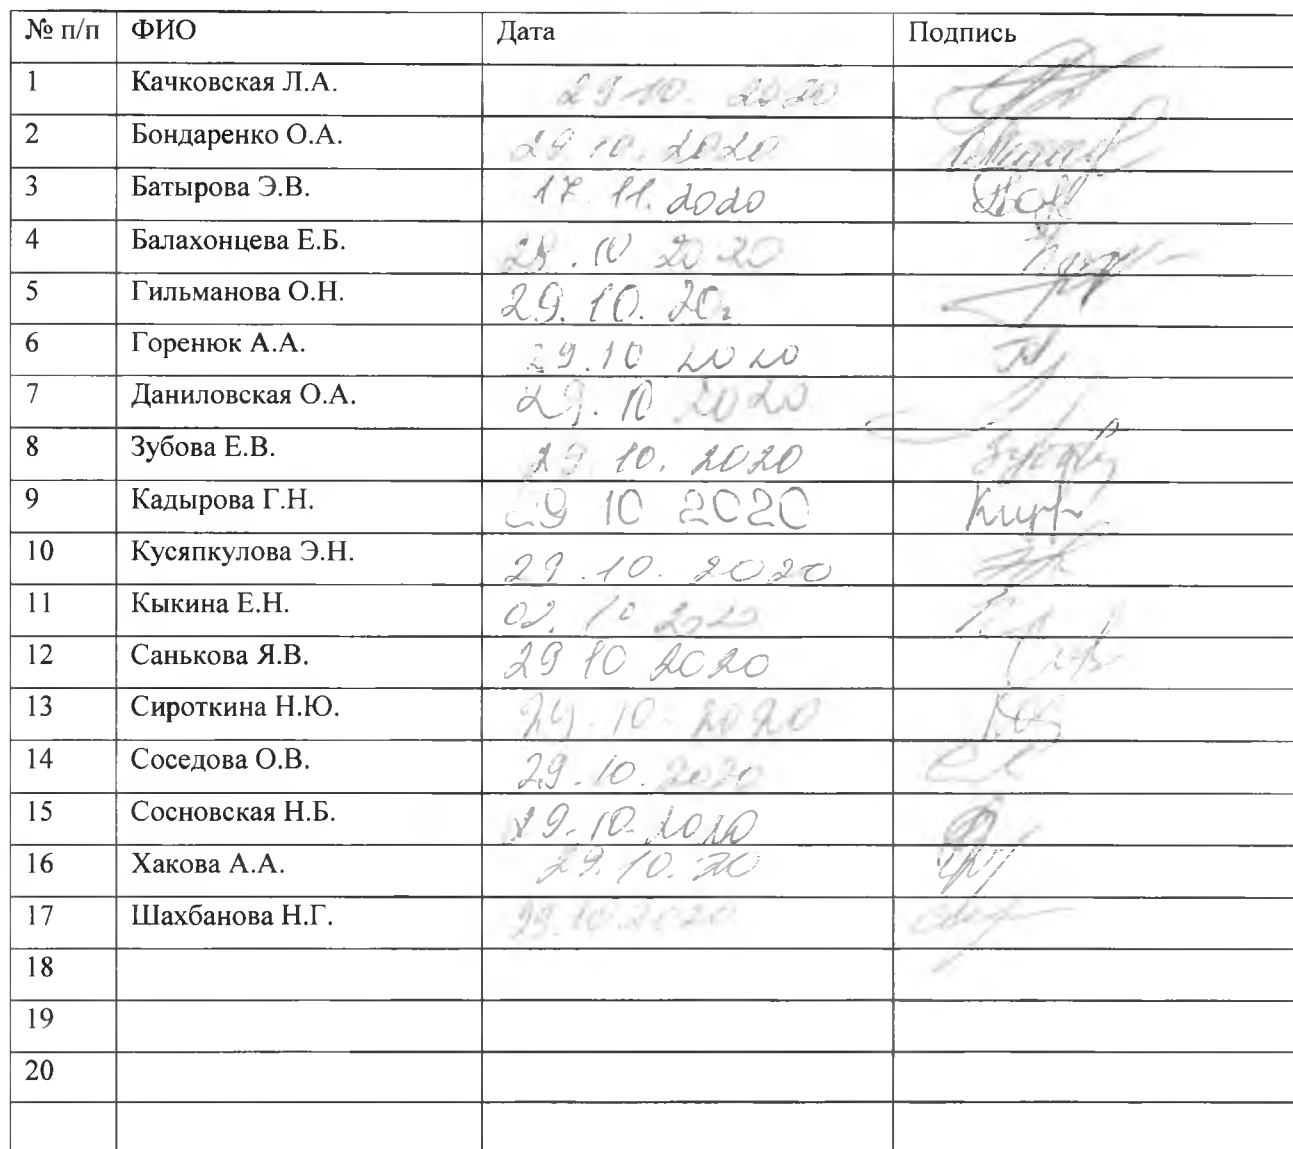 № п/п ФИО Дата Подпись
1 Качковская Л.А. 29.10. 2020
2 Бондаренко О.А. 29.10.2020
3 Батырова Э.В. 17.11.2020
4 Балахонцева Е.Б. 29.10 2020
5 Гильманова О.Н. 29.10.20г
6 Горенюк А.А. 29.10 2020
7 Даниловская О.А. 29.10 2020
8 Зубова Е.В. 29 10. 2020
9 Кадырова Г.Н. 29 10 2020
10 Кусяпкулова Э.Н. 29.10. 2020
11 Кыкина Е.Н. 02.10 2020
12 Санькова Я.В. 29 10 2020
13 Сироткина Н.Ю. 29.10.2020
14 Соседова О.В. 29.10.2020
15 Сосновская Н.Б. 29.10.2020
16 Хакова А.А. 29.10.20
17 Шахбанова Н.Г. 29.10.2020
18
19
20